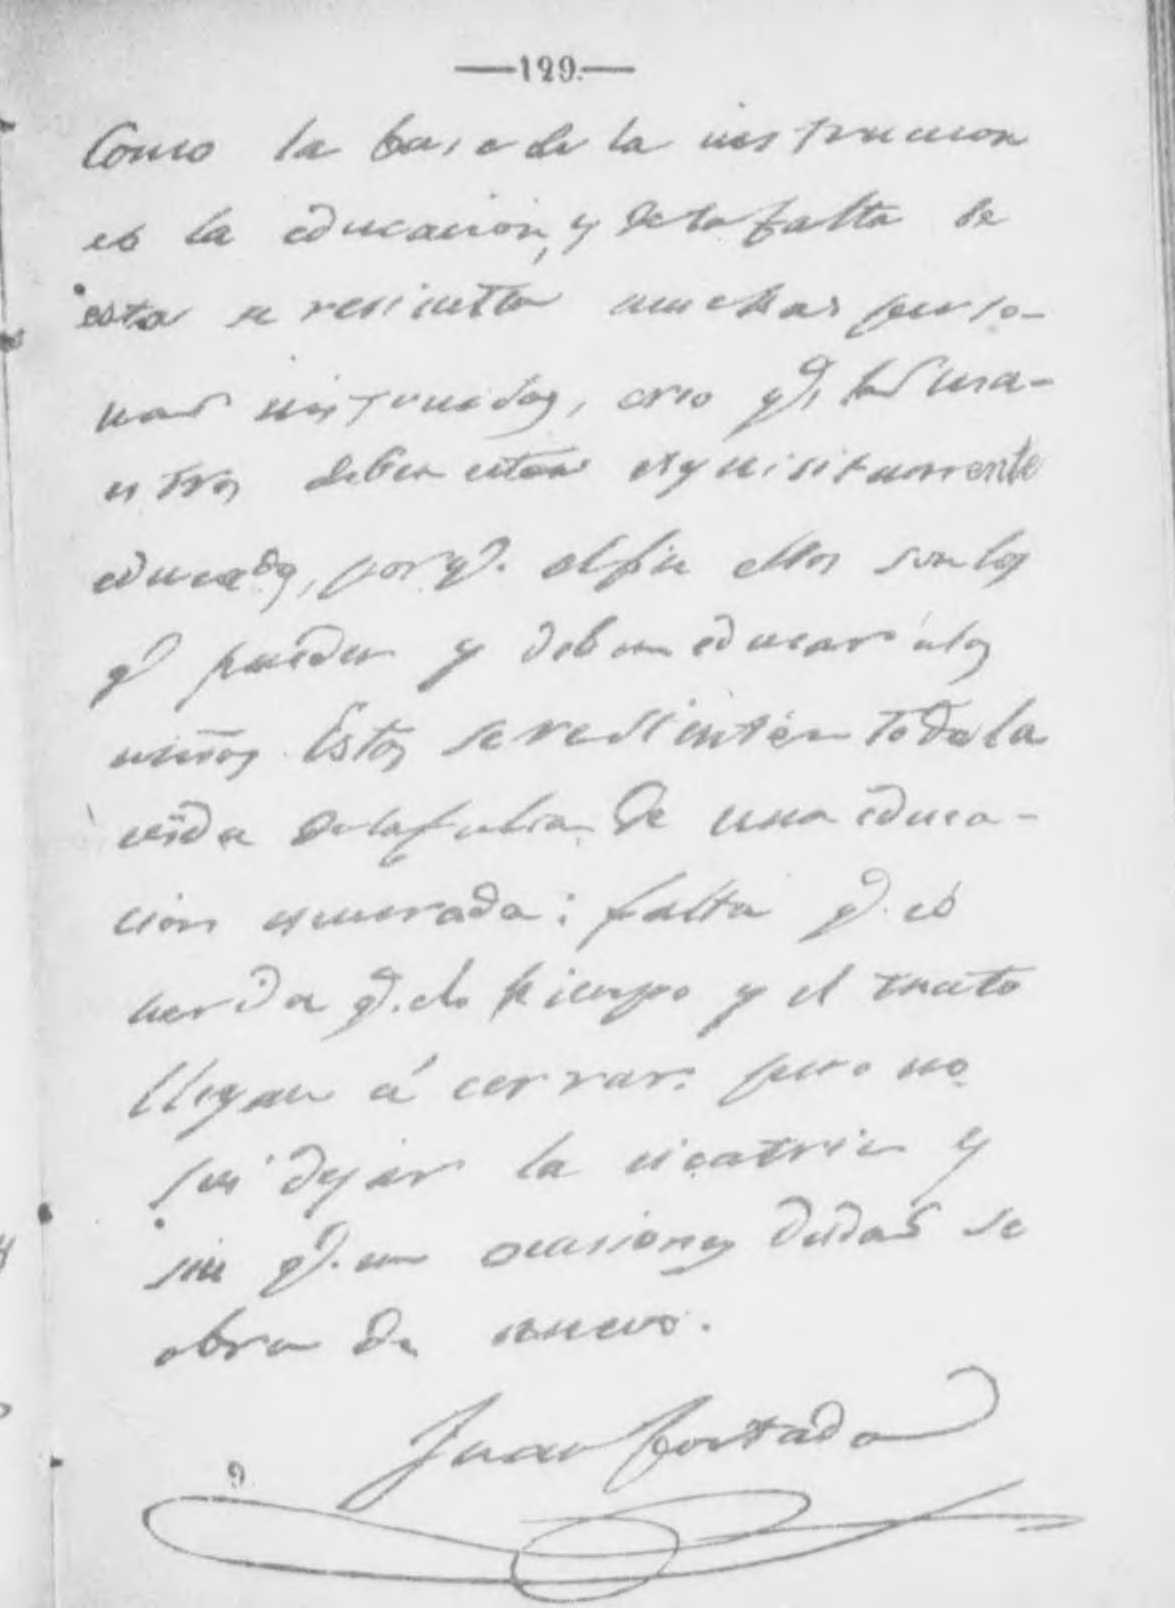 —129.—
Como la base de la instruccion
es la educacion, y de la falta de
esta se resienten muchas perso-
nas instruidas, creo q.e los ma-
estros deben estar exquisitamente
educados, porq.e al fin ellos son los
q.e pueden y deben educar á los
niños. Estos se resienten toda la
vida de la falta de una educa-
cion esmerada: falta q.e es
verdad q.e el tiempo y el trato
llegan á cerrar: pero no
sin dejar la cicatriz y
sin q.e en ocasiones dadas se
abra de nuevo.
Juan
9